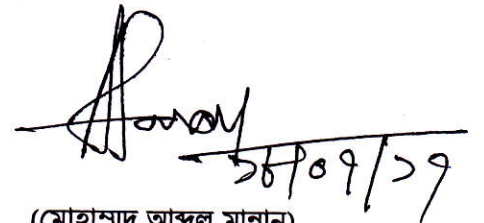 ১৮/০৭/১৭
((মোহাম্মদ আব্দুল মান্নান)